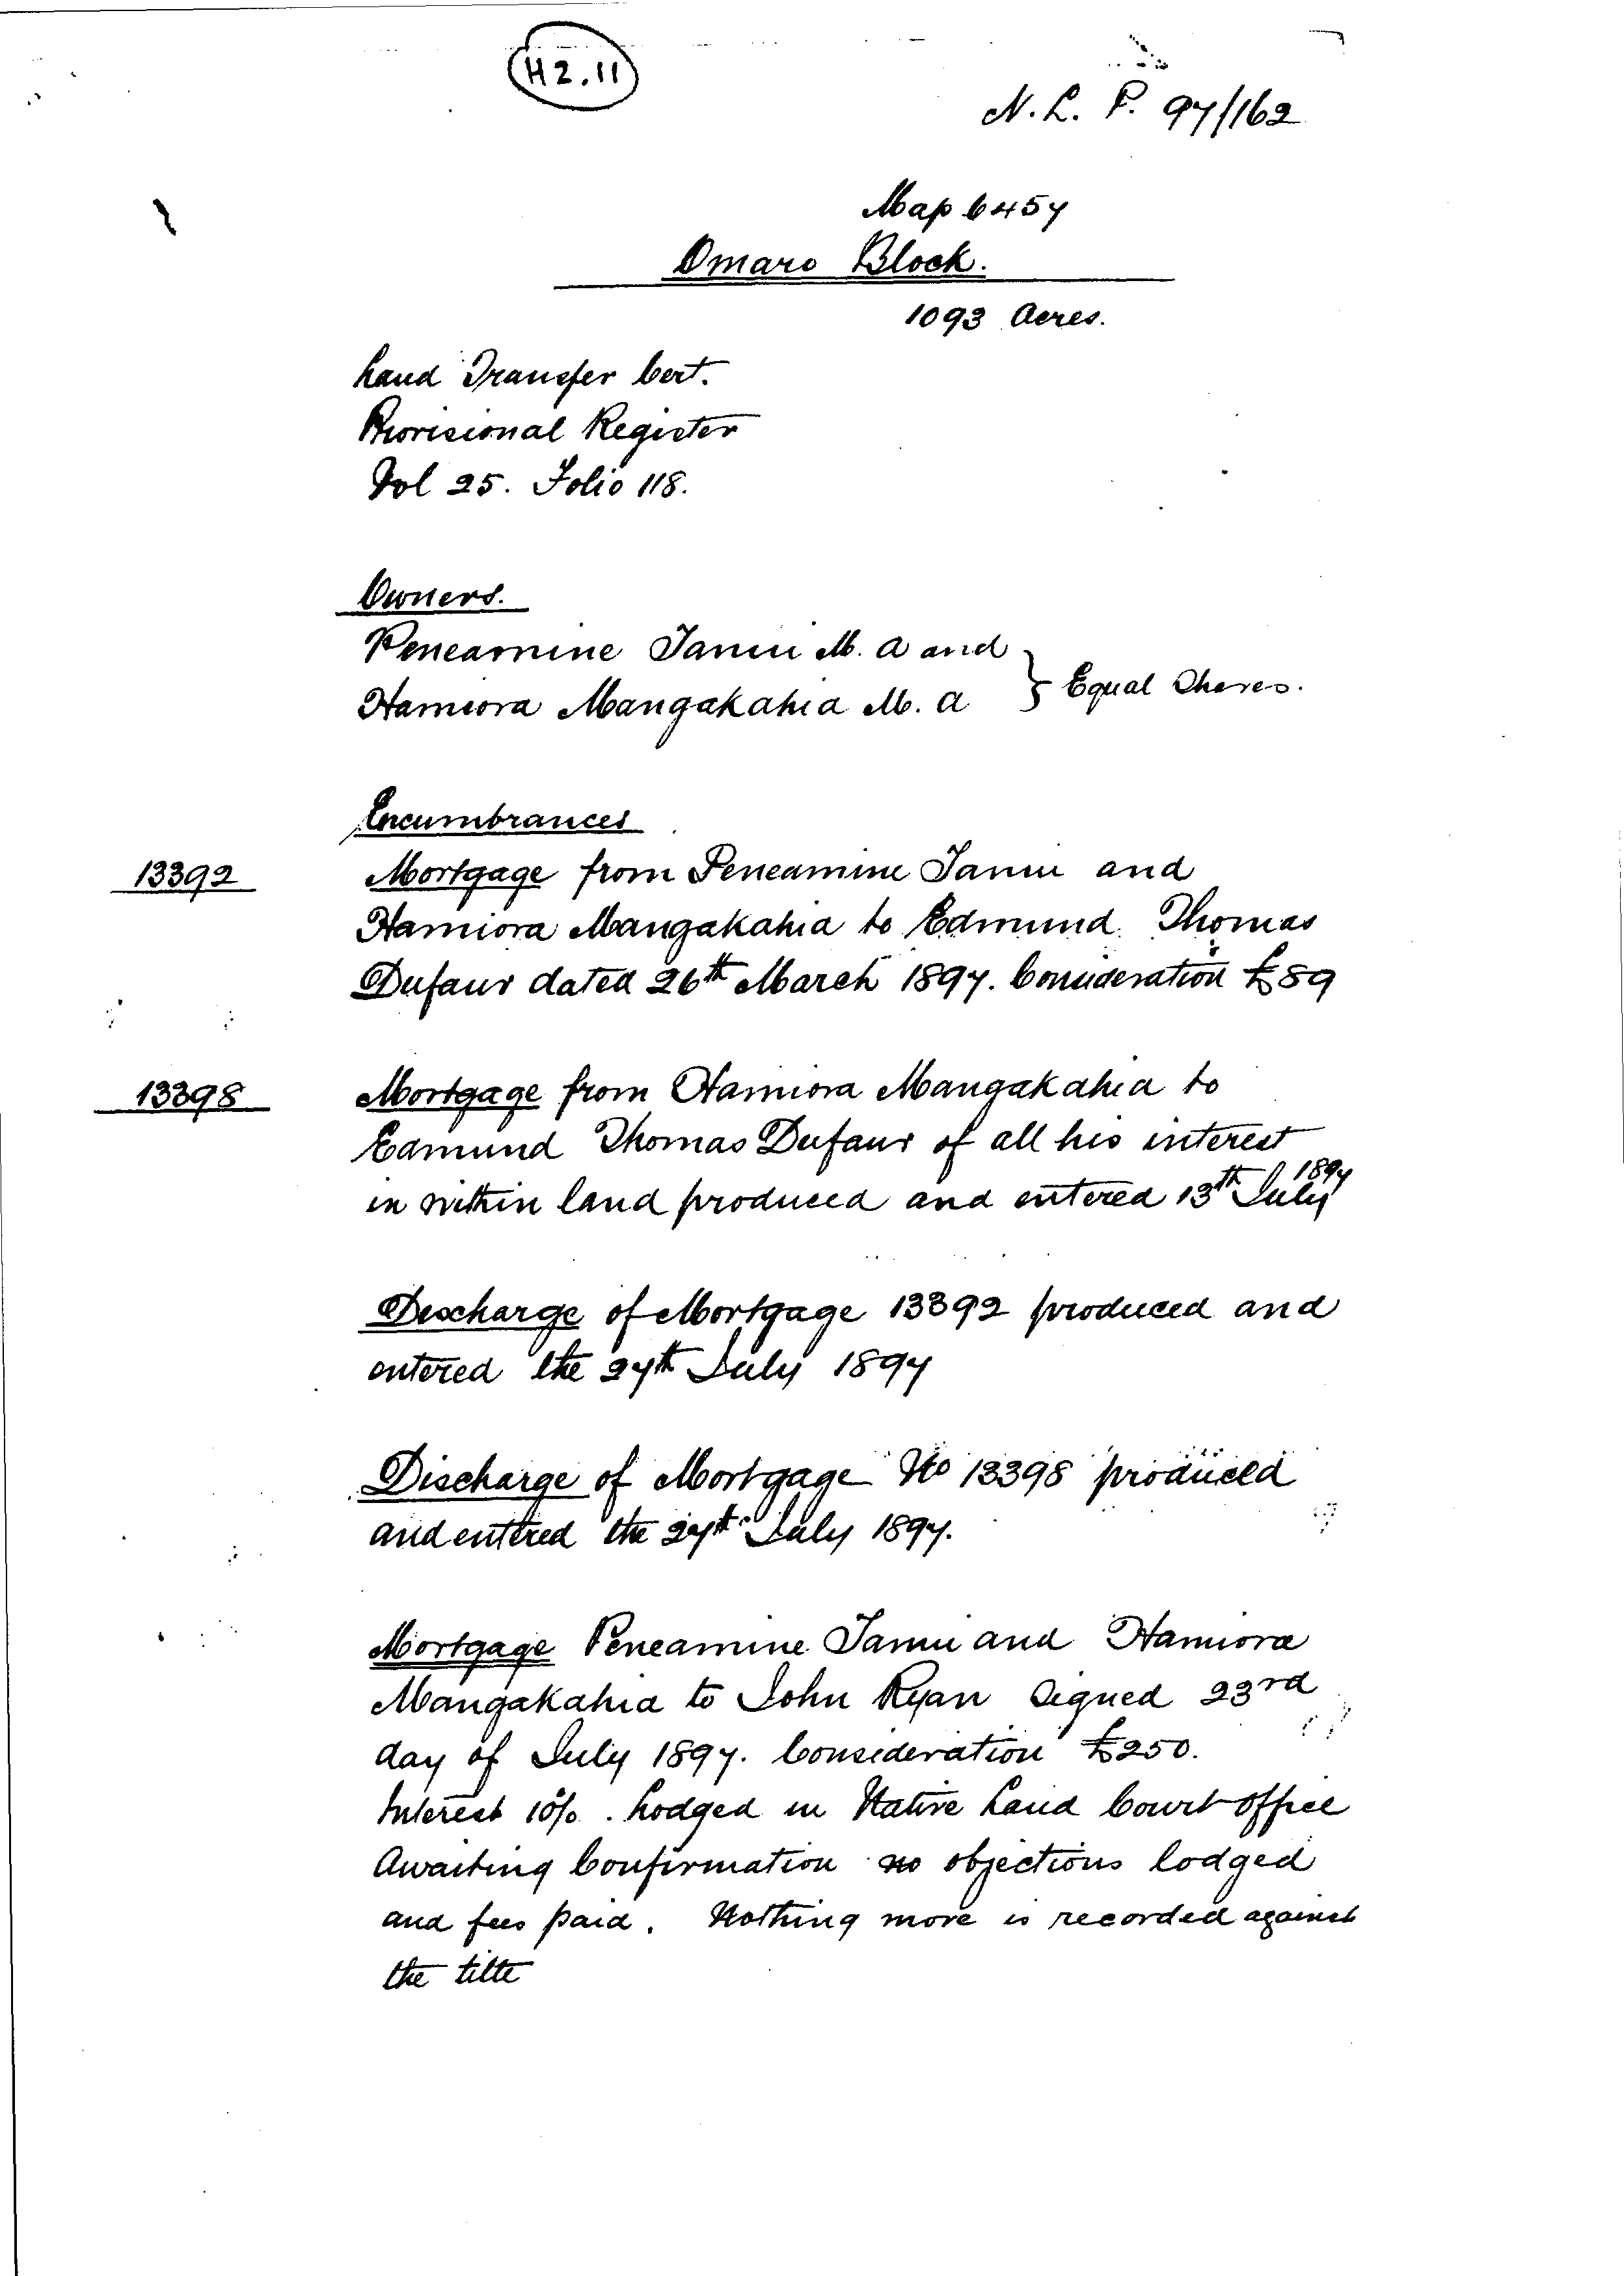 H2.11
N. L. P. 97/162
Map 6457
Omaro Block.
1093 Acres.
Land Transfer Cert.
Provisional Register
Vol 25. Folio 118.
Owners.
Peneamine Tanui M. A and
Hamiora Mangakahia M. A } Equal Shares.
Encumbrances
13392 Mortgage from Peneamine Tanui and
Hamiora Mangakahia to Edmund Thomas
Dufaur dated 26th March 1897. Consideration £59
13398 Mortgage from Hamiora Mangakahia to
Edmund Thomas Dufaur of all his interest
in within land produced and entered 13th July 1897
Discharge of Mortgage 13392 produced and
entered the 27th July 1897
Discharge of Mortgage No 13398 produced
and entered the 27th July 1897.
Mortgage Peneamine Tanui and Hamiora
Mangakahia to John Ryan Signed 23rd
day of July 1897. Consideration £250.
Interest 10%. Lodged in Native Land Court office
Awaiting Confirmation no objections lodged
and fees paid. Nothing more is recorded against
the title